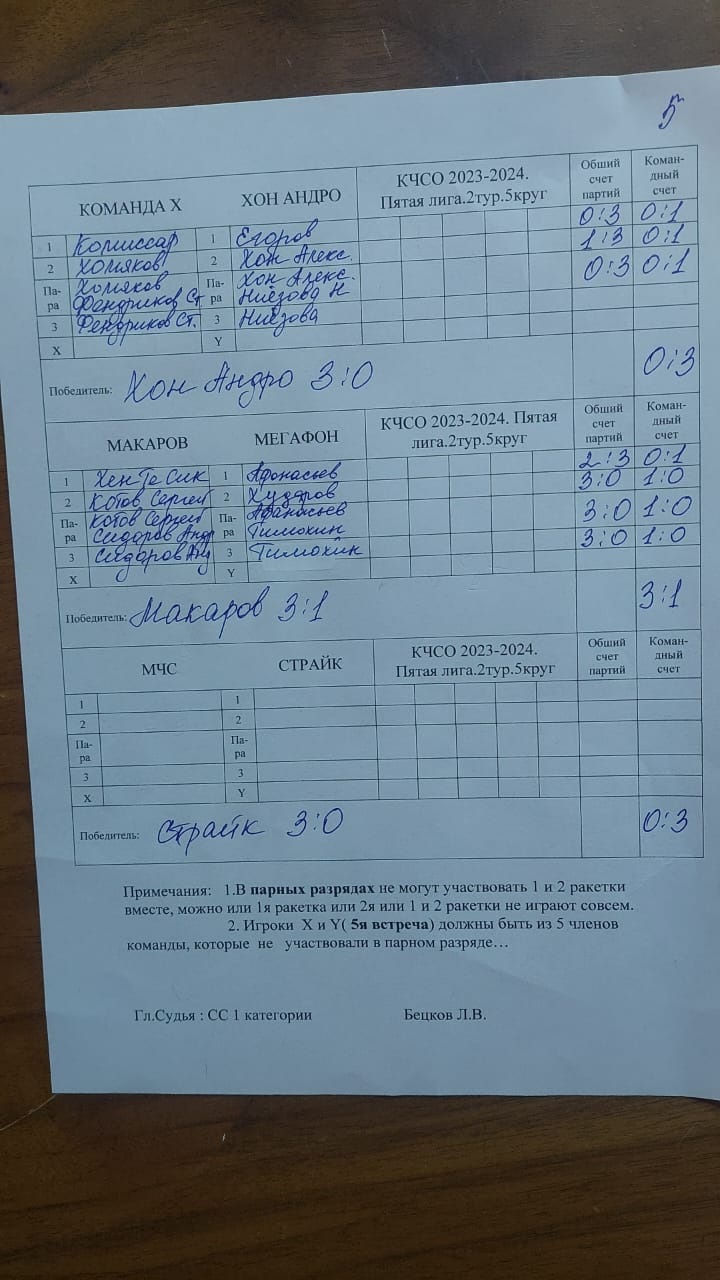 5
КОМАНДА Х ХОН АНДРО КЧСО 2023-2024. Пятая лига.2тур.5круг Общий счет партий Коман-дный счет
1 Комиссар 1 Егоров 0:3 0:1
2 Хомяков 2 Хон Алекс. 1:3 0:1
Па-ра Хомяков Фендриков Ст Па-ра Хон Алекс. Ниёзова Н 0:3 0:1
3 Фендриков Ст. 3 Ниёзова
Х Y
Победитель: Хон Андро 3:0 0:3
МАКАРОВ МЕГАФОН КЧСО 2023-2024. Пятая лига.2тур.5круг Общий счет партий Коман-дный счет
1 Хен Те Сик 1 Афонасьев 2:3 0:1
2 Котов Сергей 2 3:0 1:0
Па-ра Котов Сергей Сидоров Андр Па-ра Афанасьев Тимохин 3:0 1:0
3 Сидоров Анд 3 Тимохин 3:0 1:0
Х Y
Победитель: Макаров 3:1 3:1
МЧС СТРАЙК КЧСО 2023-2024. Пятая лига.2тур.5круг Общий счет партий Коман-дный счет
1 1
2 2
Па-ра Па-ра
3 3
Х Y
Победитель: Страйк 3:0 0:3
Примечания: 1.В парных разрядах не могут участвовать 1 и 2 ракетки
вместе, можно или 1я ракетка или 2я или 1 и 2 ракетки не играют совсем.
2. Игроки Х и Y( 5я встреча) должны быть из 5 членов
команды, которые не участвовали в парном разряде…
Гл.Судья : СС 1 категории Бецков Л.В.